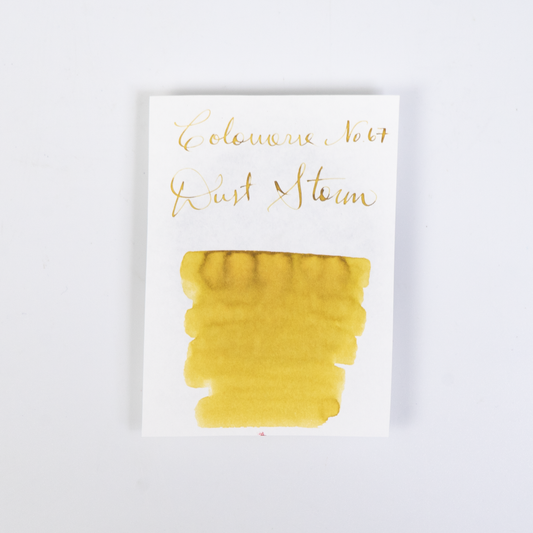 Colorverse No 67
Dust Storm